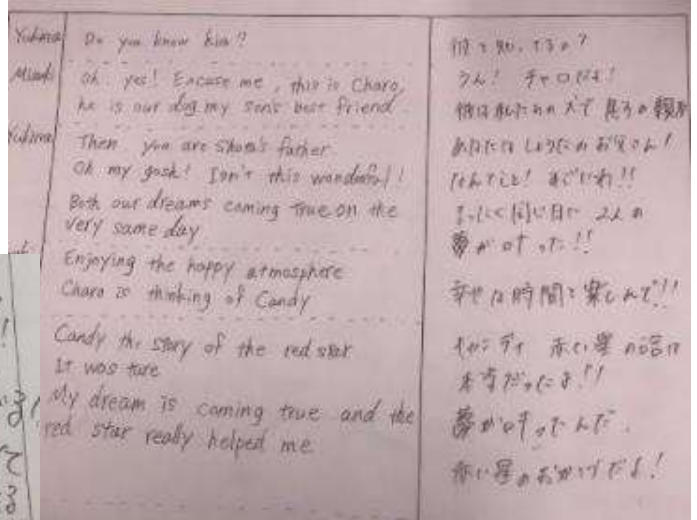 Yukina Do you know him?
Oh yes! Excuse me, this is Charo,
he is our dog my son's best friend.
Then you are Shota's father
Oh my gosh! Isn't this wonderful!
Both our dreams coming true on the
very same day
Enjoying the happy atmosphere
Charo is thinking of Candy
Candy the story of the red star
It was ture
My dream is coming true and the
red star really helped me
うん! チャロだよ!
あなたは しょうたの お父さん!
なんてこと! すごいわ!!
まったく同じ日に 2人の
夢が叶った!!
幸せな時間を楽しんで!!
キャンディ 赤い星の話は
本当だったよ!!
夢が叶ったんだ.
赤い星のおかげだよ!